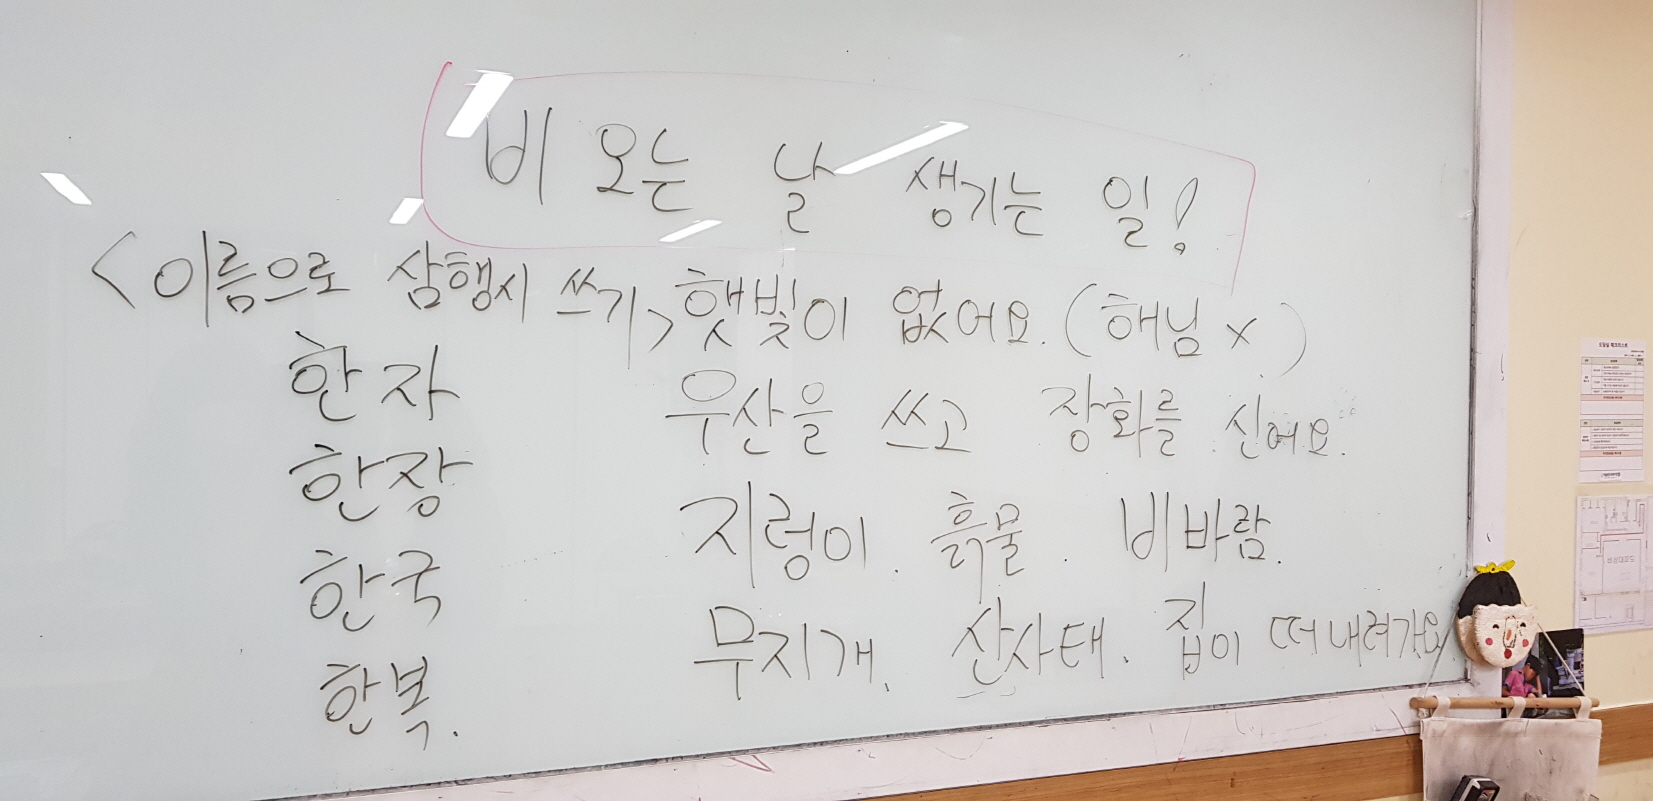 비 오는 날 생기는 일!
<이름으로 삼행시 쓰기>
한자
한장
한국
한복.
햇빛이 없어요. (해님 x)
우산을 쓰고 장화를 신어요.
지렁이. 흙물. 비바람.
무지개. 산사태. 집이 떠내려가요